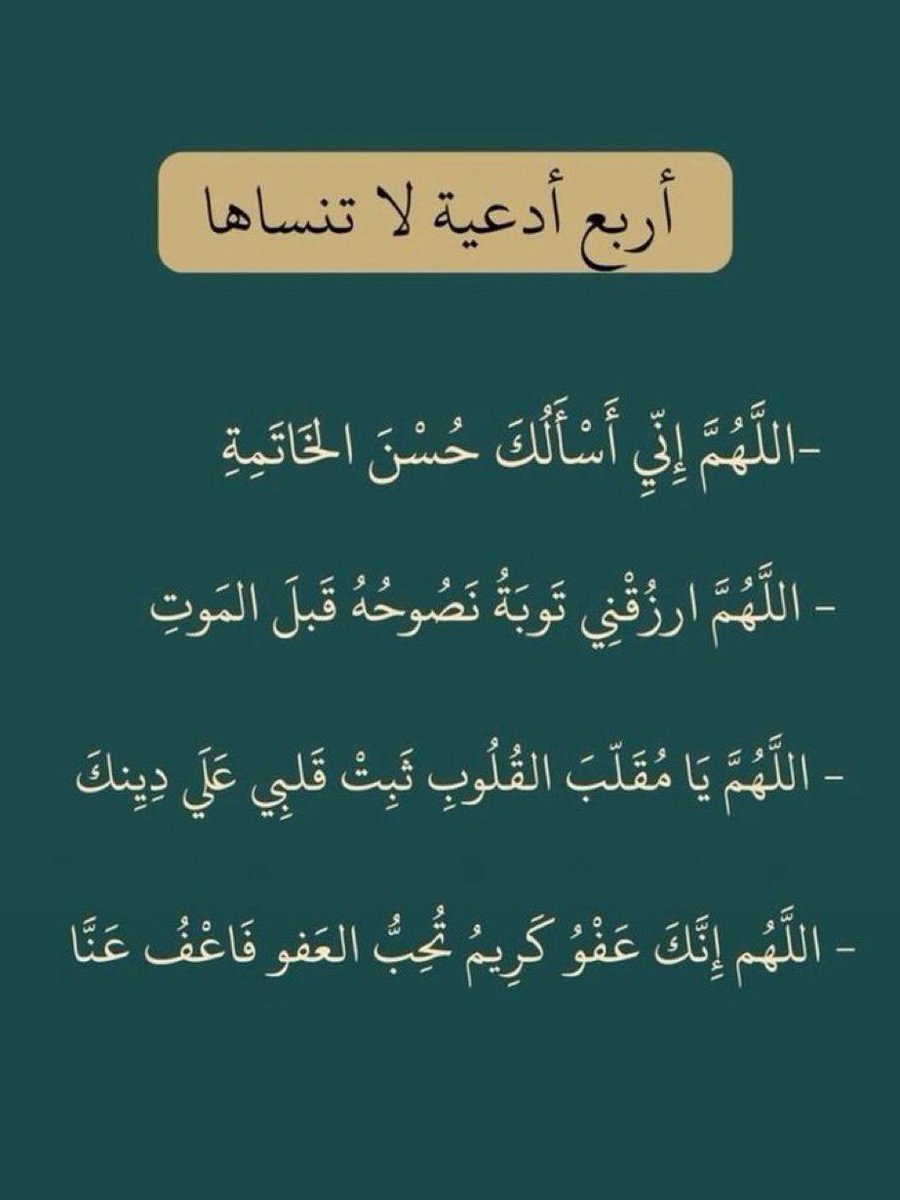 أربع أدعية لا تنساها
-اللَّهُمَّ إِنِّيِ أَسْأَلُكَ حُسْنَ الخَاتَمِةِ
- اللَّهُمَّ ارزُقْنِي تَوبَةُ نَصُوحُهُ قَبلَ المَوتِ
- اللَّهُمَّ يَا مُقَلّبَ القُلُوبِ ثَبِتْ قَلبِي عَلَي دِينِكَ
- اللَّهُم إِنَّكَ عَفْوُ كَرِيمُ تُحِبُّ العَفو فَاعْفُ عَنَّا